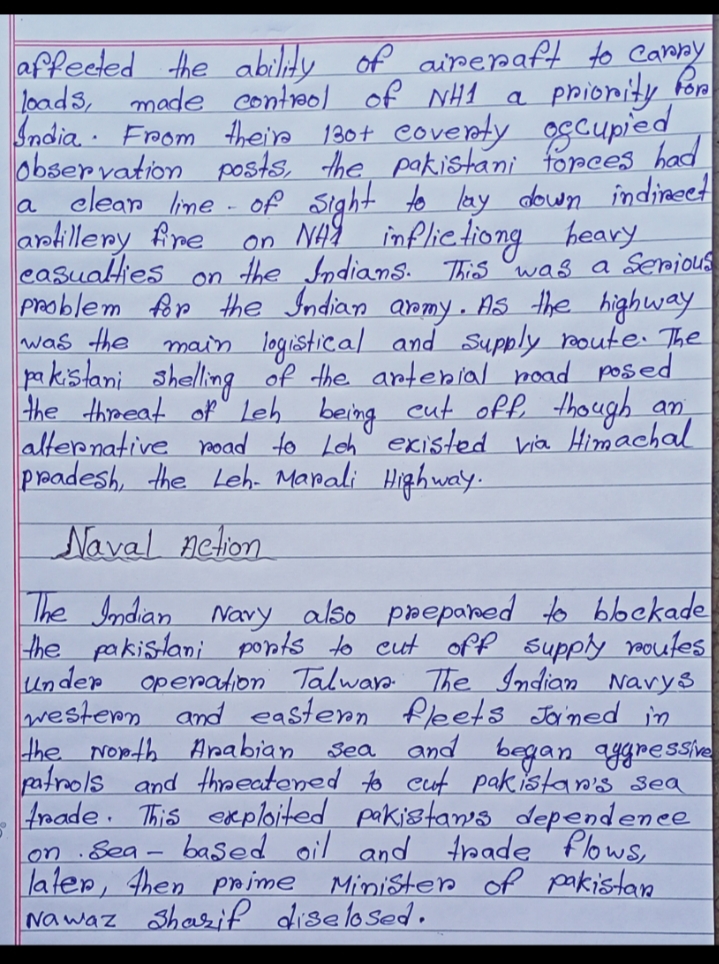 affected the ability of aircraft to carry
loads, made control of NH1 a priority for
India. From their 130+ coverty occupied
observation posts, the pakistani forces had
a clear line - of sight to lay down indirect
artillery fire on NH1 inflictiong heavy
casualties on the Indians. This was a serious
problem for the Indian army. As the highway
was the main logistical and supply route. The
pakistani shelling of the arterial road posed
the threat of Leh being cut off, though an
alternative road to Leh existed via Himachal
pradesh, the Leh- Manali Highway.
Naval Action
The Indian Navy also prepared to blockade
the pakistani ports to cut off supply routes
under operation Talwar. The Indian Navys
western and eastern fleets Joined in
the North Arabian sea and began aggressive
patrols and threatened to cut pakistan's sea
trade. This exploited pakistan's dependence
on . Sea - based oil and trade flows,
later, then prime Minister of pakistan
Nawaz Sharif disclosed.